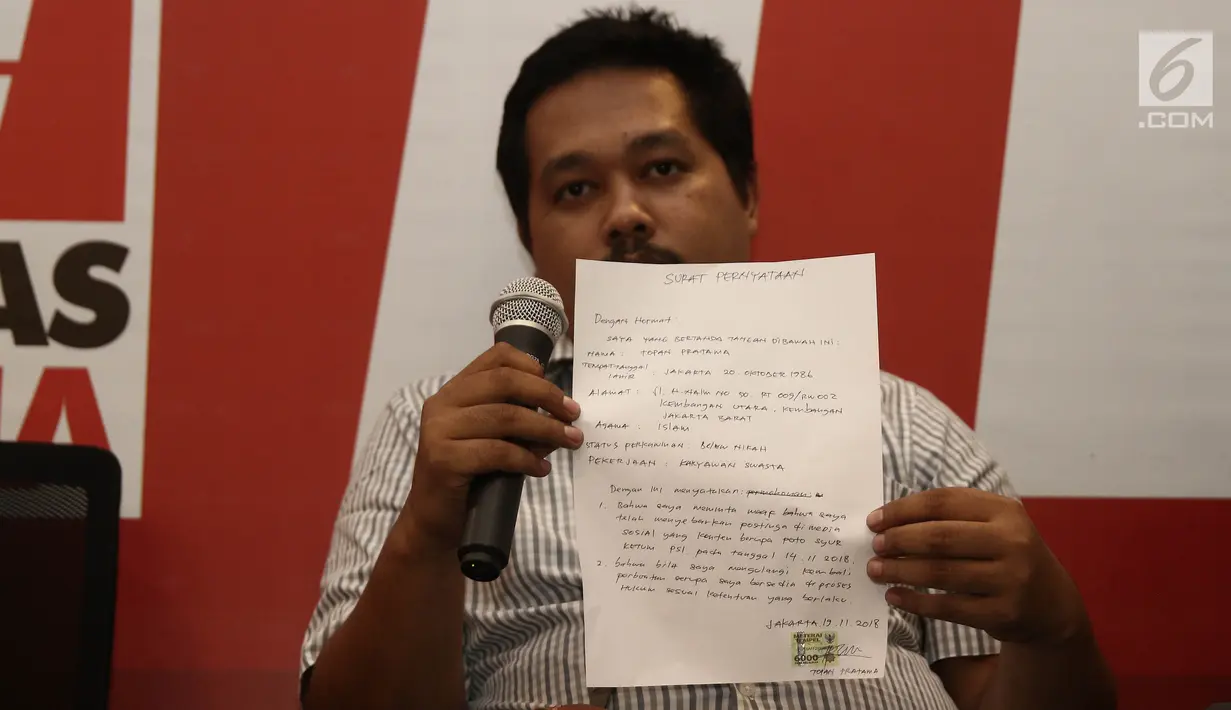 6
.COM
AS
A
SURAT PERNYATAAN
Dengan Hormat:
SAYA YANG BERTANDA TANGAN DIBAWAH INI:
NAMA : TOPAN PRATAMA
TEMPAT TANGGAL
LAHIR : JAKARTA 20 OKTOBER 1986
ALAMAT : Jl. H. NO 50 RT 009/RW 002
KEMBANGAN UTARA, KEMBANGAN
JAKARTA BARAT
AGAMA : ISLAM
STATUS PERKAWINAN : BELUM NIKAH
PEKERJAAN : KARYAWAN SWASTA
Dengan ini menyatakan:
1. Bahwa saya meminta maaf bahwa saya
telah menyebarkan posting di media
sosial yang konten berupa foto syur
KETUM PSI. pada tanggal 14.11 2018.
2. bahwa bila saya mengulangi kembali
perbuatan serupa saya bersedia di proses
Hukum sesuai ketentuan yang berlaku.
JAKARTA 19.11.2018
METERAI
TEMPEL
6000
TOPAN PRATAMA